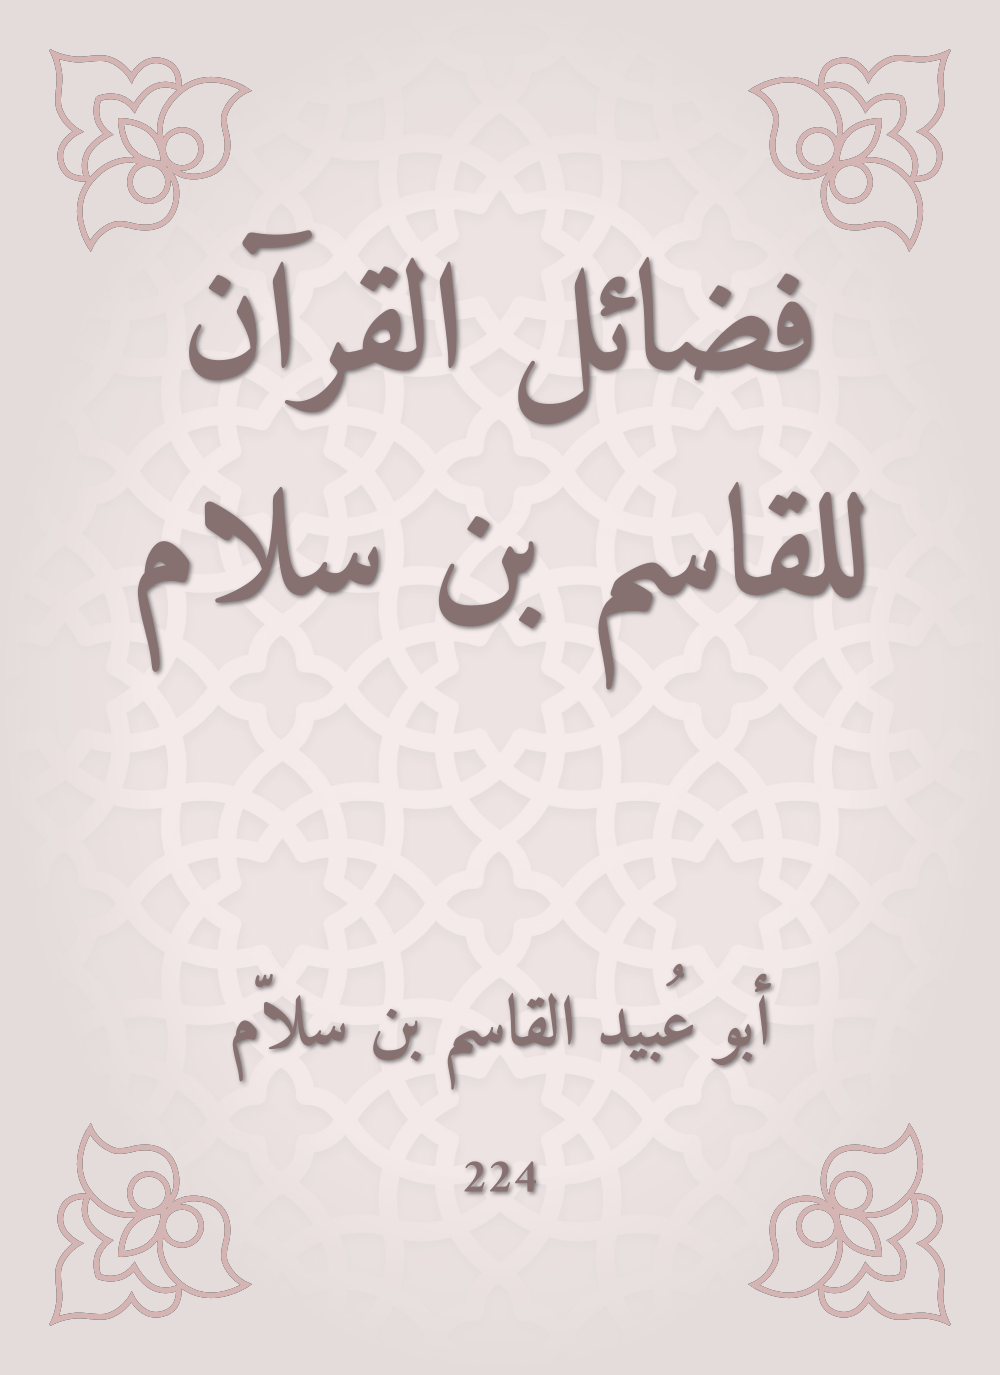 فضائل القرآن
للقاسم بن سلام
أبو عُبيد القاسم بن سلاّم
224